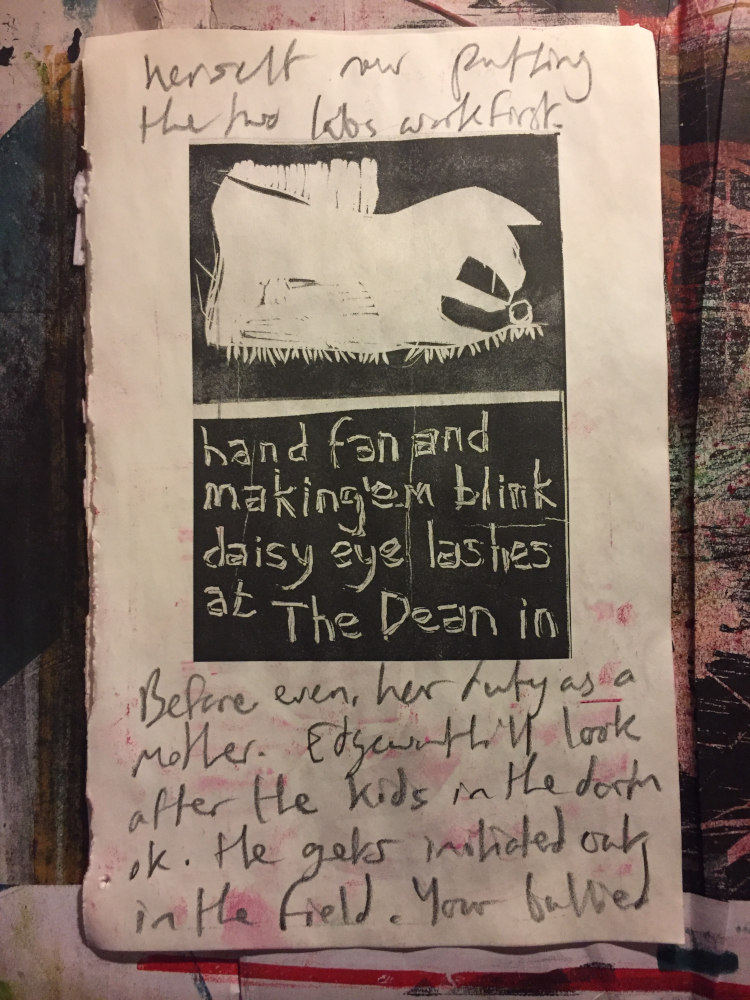 herself now putting
the two labs work first.
hand fan and
making'em blink
daisy eye lashes
at The Dean in
Before even, her duty as a
mother. Edgeworth'll look
after the kids in the dorm
ok. He gets initiated out
in the field. Your bullied